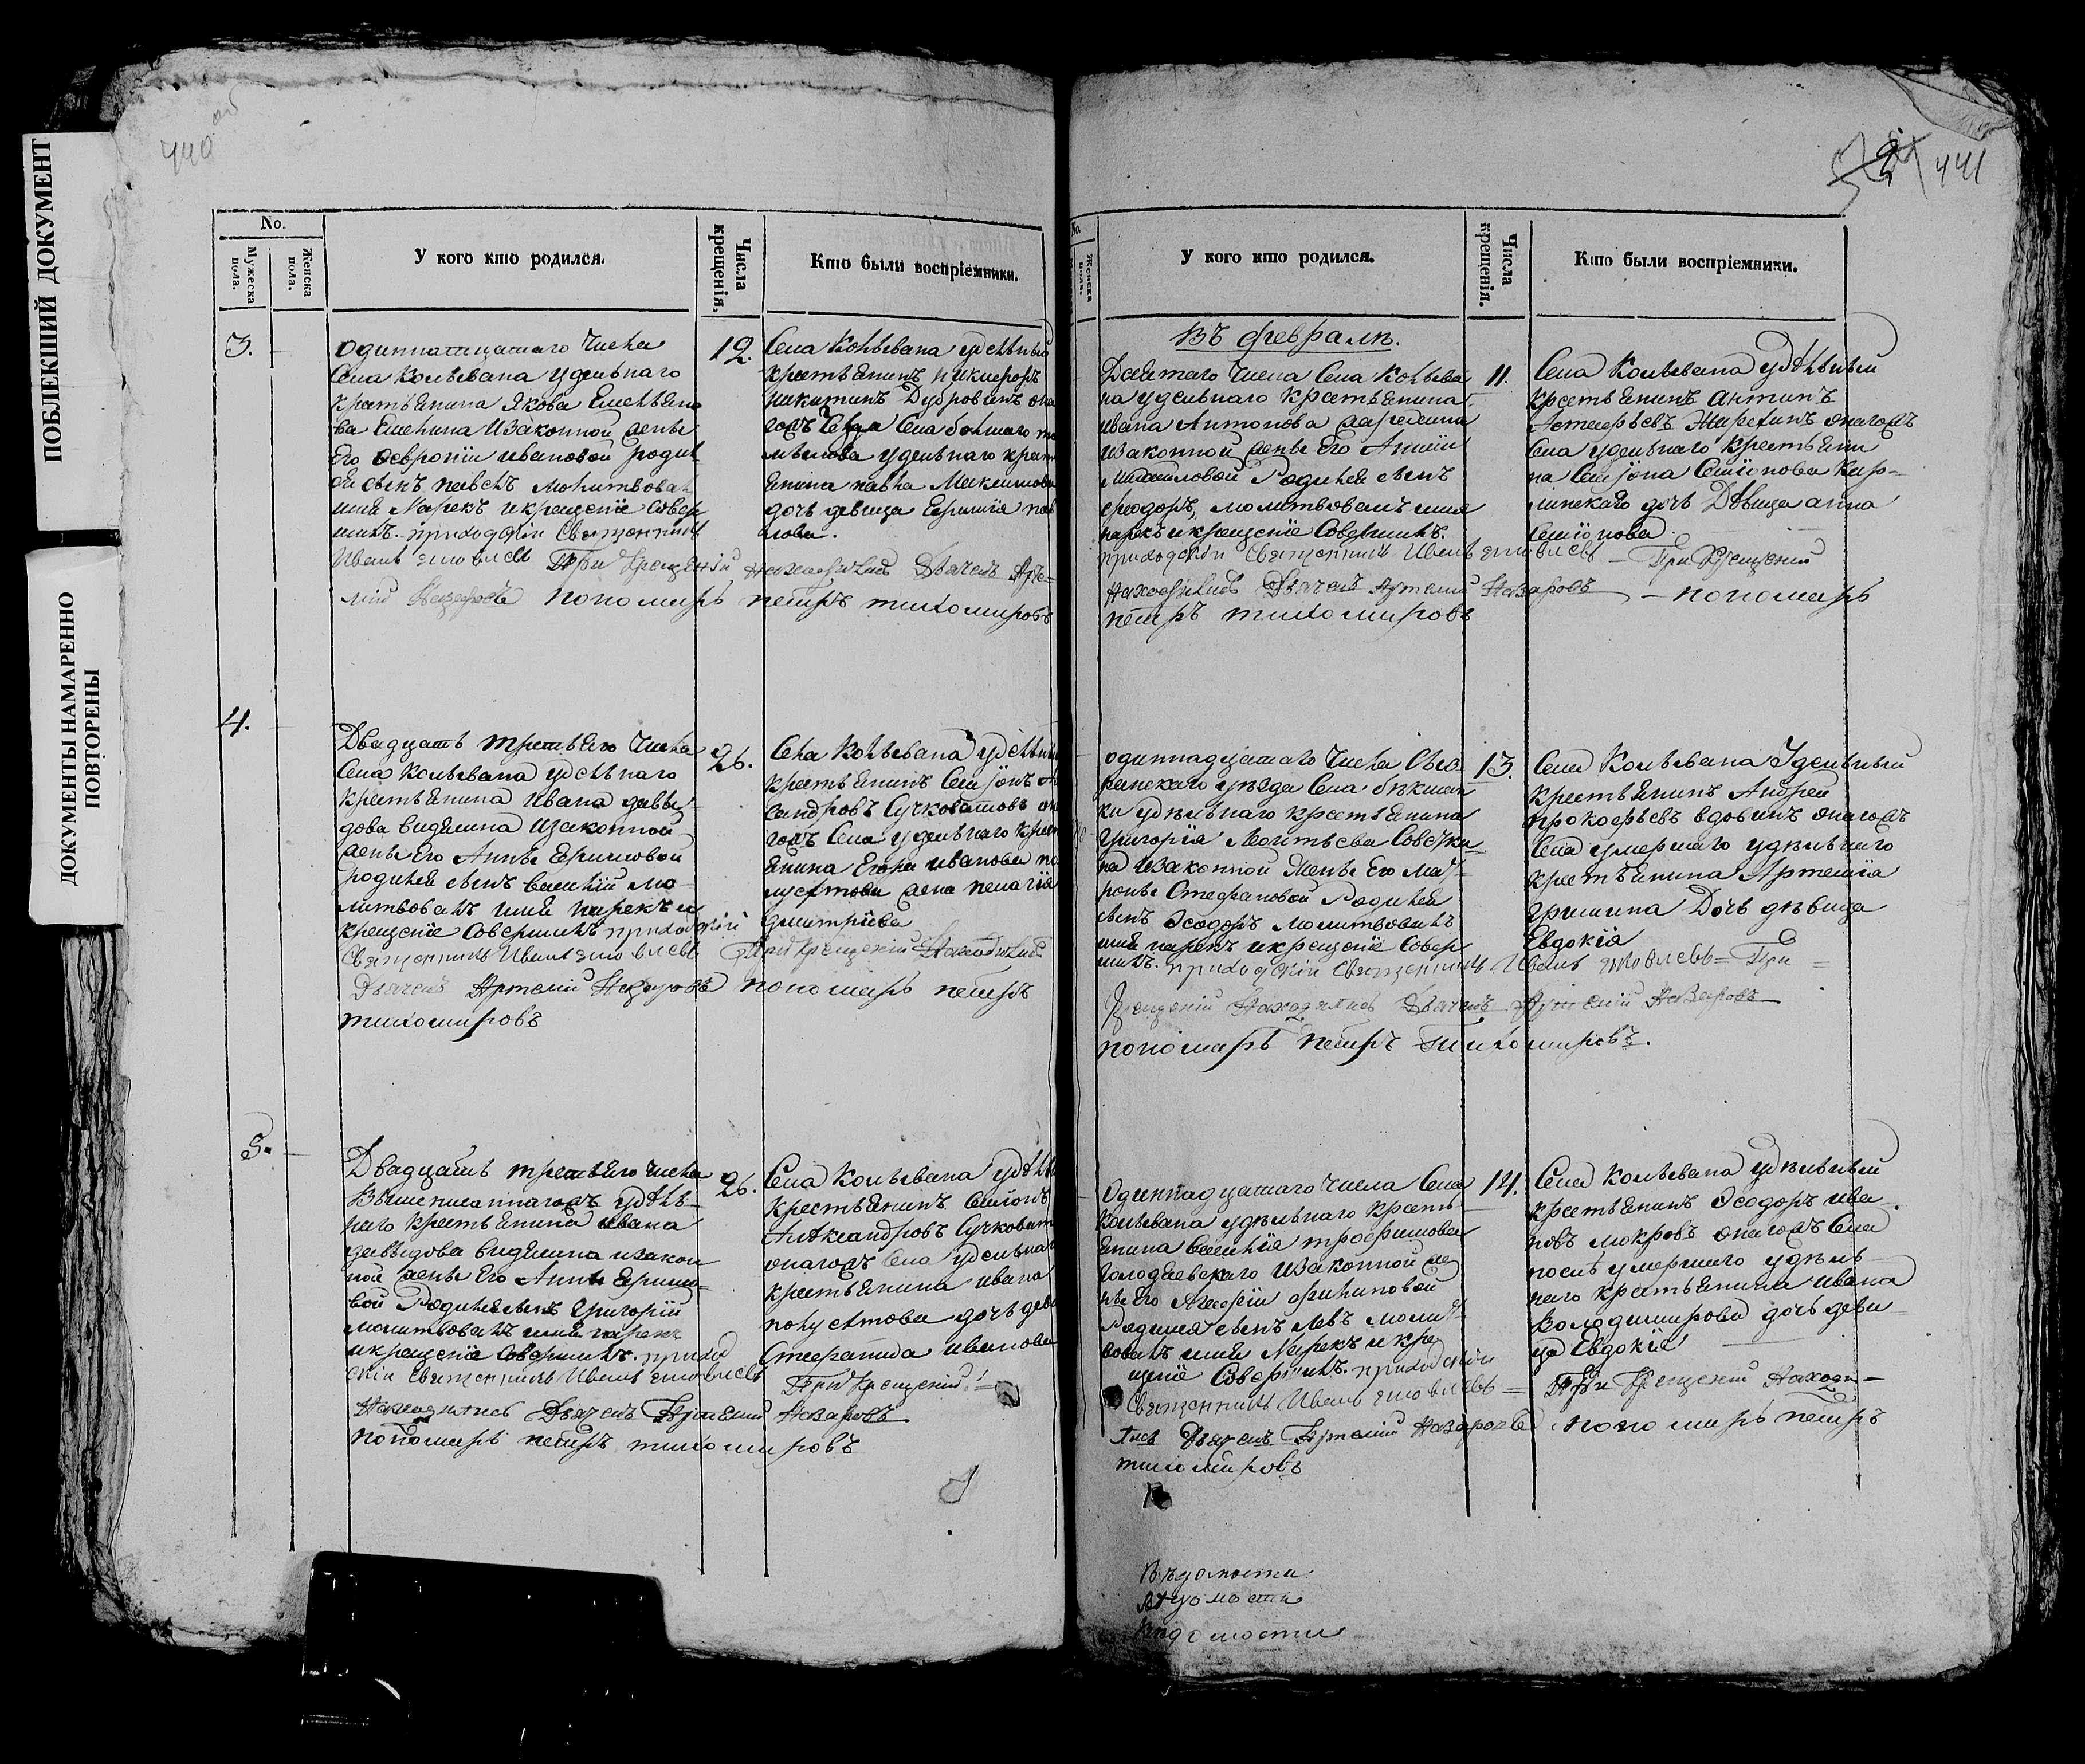 ПОБЛЕКШИЙ ДОКУМЕНТ
ДОКУМЕНТЫ НАМАРЕННО
ПОВТОРЕНЫ
440 об
441
No.
Мужеска
пола.
Женска
пола.
У кого кто родился.
Числа
крещенія.
Кто были воспріемники.
3.
одиннатцатаго Числа
Села Колывана удельнаго
крестьянина Якова Емельяно
ва Емелина Изаконной жены
Его Февроніи ивановой родил
ся сынъ павелъ молитвовал
имя Нарекъ и крещеніе Совер
шилъ. приходскій Священникъ
Иванъ яковлевъ При крещеніи находились Дьячекъ Арте-
мій Назаровъ пономарь петръ тихомировъ
12.
Села Колывана удельный
крестьянинъ никифоръ
никитинъ Дубровинъ
Села болшаго
удельнаго
павла Максимова
дочь девица
4.
Двадцать третьяго Числа
Села Колывана удельнаго
крестьянина Ивана давы-
дова видяшина Изаконной
жены Его Анны
родился сынъ василій мо-
литвовалъ имя нарекъ и
крещеніе Совершилъ приходскій
Священникъ Иванъ яковлевъ При крещеніи Находились
Дьячекъ Артемій Назаровъ пономарь петръ
тихомировъ
26.
Села Колывана удельный
крестьянинъ Семіонъ
сандровъ Сучковатовъ
гожъ Села удельнаго
янина Егора иванова
жена пелагія
дмитріева
5.
Двадцать третьяго числа
Вышеписаннагожъ удель-
наго крестьянина ивана
давыдова видяшина изакон
ной жены Его Анны
вой Родился сынъ Григорій
молитвовалъ имя нарекъ
и крещеніе совершилъ. приход
скій священникъ Иванъ яковлевъ При крещеніи
Находились Дьячекъ Артемій Назаровъ
пономарь петръ тихомировъ
26.
Села Колывана
крестьянинъ Семіонъ
Александровъ Сучковат
онагожъ Села удельнаг
крестьянина ивана
полуектова дочь
Степанида иванова
No.
Женска
пола.
У кого кто родился.
Числа
крещенія.
Кто были воспріемники.
Въ февралѣ.
Десятаго Числа Села Колыва
на удельнаго крестьянина
ивана Антонова
Изаконной жены Его
Михайловой Родился сынъ
феодоръ, молитвовалъ имя
нарекъ и крещеніе Совершилъ.
приходскій Священникъ Иванъ яковлевъ – При крещеніи
находились Дьячекъ Артемій Назаровъ – пономарь
петръ тихомировъ
11.
Села Колывана удѣльный
крестьянинъ антипъ
онагожъ
Села удельнаго крестьяни
на Семіона Семіонова
дочь Дѣвица анна
Семіонова
одиннадцатаго Числа
уѣзда Села
ки удѣльнаго крестьянина
Григорія
на Изаконной Жены Его Мат
роны Стефановой Родился
сынъ Феодоръ молитвовалъ
имя нарекъ и крещеніе Совер
шилъ. приходскій Священникъ Иванъ яковлевъ = При
крещеніи Находились Дьячекъ Артемій Назаровъ
пономарь петръ тихомировъ.
13.
Села Колывана Удельный
крестьянинъ Андрей
прокофьевъ вдовинъ онагожъ
Села умершаго удѣльнаго
крестьянина Артемія
гришина Дочь дѣвица
Евдокія
Одиннадцатаго числа Села
Колывана удѣльнаго кресть
янина Василія трофимова
Изаконной же
ны Его
Родился сынъ Левъ молит
вовалъ имя Нарекъ и кре
щеніе Совершилъ. приходскій
Священникъ Иванъ яковлевъ = При крещеніи Находи-
лись Дьячекъ Артемій Назаровъ пономарь петръ
тихомировъ
14.
Села Колывана удѣльный
крестьянинъ Феодоръ ива
новъ мокровъ онагожъ Села
умершаго удѣль-
наго крестьянина ивана
Володимирова дочь деви
ца Евдокія
Вѣдомости
Вѣдомости
Вѣдомости